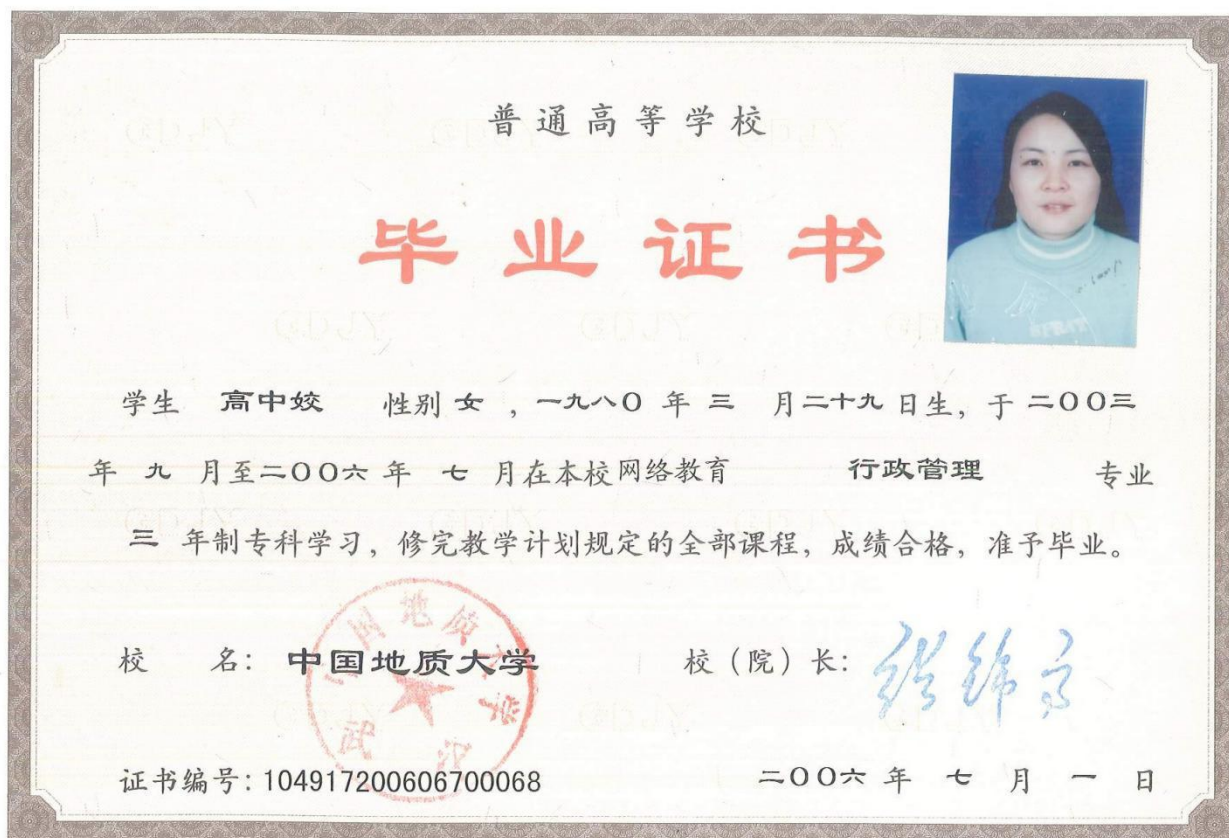 普通高等学校
毕业证书
学生 高中姣 性别 女 , 一九八〇 年 三 月二十九日生, 于 二〇〇三
年 九 月至二〇〇六 年 七 月在本校网络教育 行政管理 专业
三 年制专科学习, 修完教学计划规定的全部课程, 成绩合格, 准予毕业。
校 名: 中国地质大学 校(院)长:
中国地质大学
武汉
证书编号: 104917200606700068 二〇〇六 年 七 月 一 日